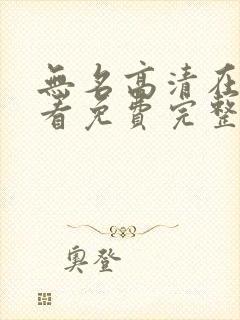 無名高清在
看免費完整
奧登